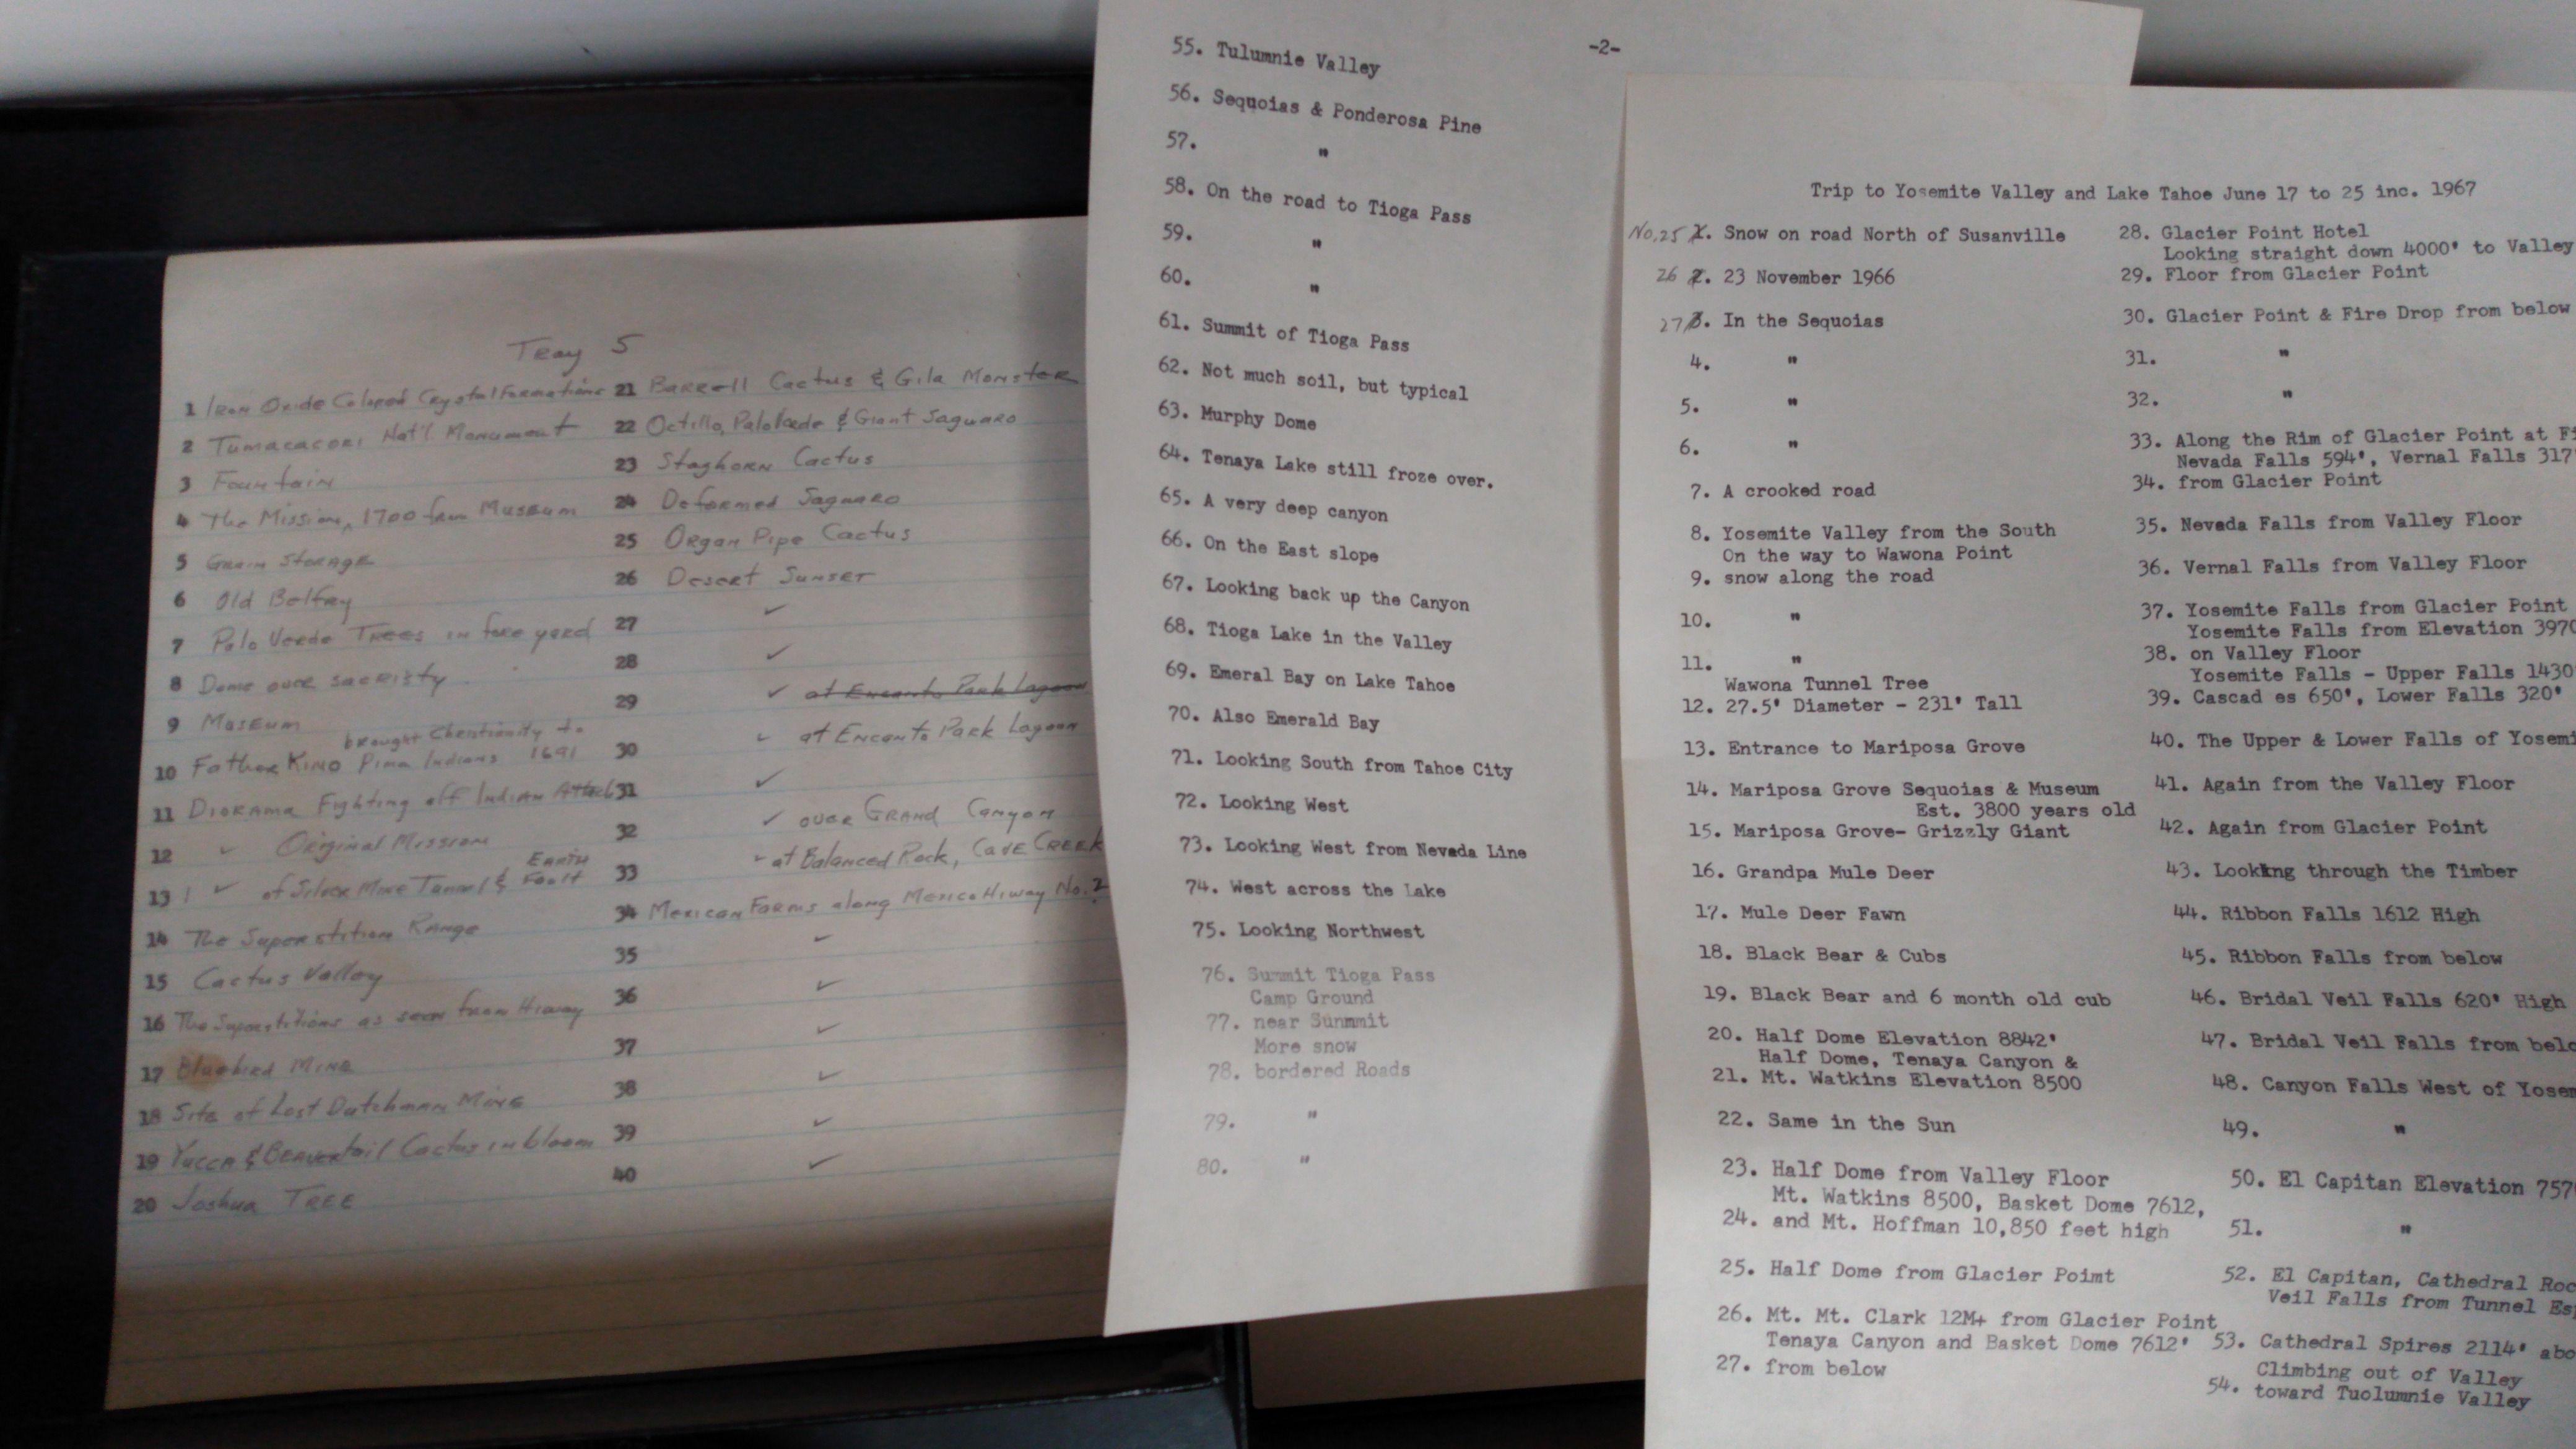 Tray 5
1 Iron Oxide Colored Crystal Formations
2 Tumacacori Nat'l Monument
3 Fountain
4 The Mission, 1700 from Museum
5 Grain Storage
6 Old Belfry
7 Palo Verde Trees in fore yard
8 Dome over sacristy
9 Museum
brought Christianity to
10 Father Kino Pima Indians 1691
11 Diorama Fighting off Indian Attack
12 " Original Mission
13 " of Silver Mine Tunnel & Earth Fault
14 The Superstition Range
15 Cactus Valley
16 The Superstitions as seen from Hiway
17 Bluebird Mine
18 Site of Lost Dutchman Mine
19 Yucca & Beavertail Cactus in bloom
20 Joshua Tree
21 Barrell Cactus & Gila Monster
22 Octillo, Palo Verde & Giant Saguaro
23 Staghorn Cactus
24 Deformed Saguaro
25 Organ Pipe Cactus
26 Desert Sunset
27 ✓
28 ✓
29 ✓ at Encanto Park Lagoon
30 ✓ at Encanto Park Lagoon
31 ✓
32 ✓ over Grand Canyon
33 ✓ at Balanced Rock, Cave Creek
34 Mexican Farms along Mexico Hiway No. 2
35 ✓
36 ✓
37 ✓
38 ✓
39 ✓
40 ✓
-2-
55. Tulumnie Valley
56. Sequoias & Ponderosa Pine
57. "
58. On the road to Tioga Pass
59. "
60. "
61. Summit of Tioga Pass
62. Not much soil, but typical
63. Murphy Dome
64. Tenaya Lake still froze over.
65. A very deep canyon
66. On the East slope
67. Looking back up the Canyon
68. Tioga Lake in the Valley
69. Emeral Bay on Lake Tahoe
70. Also Emerald Bay
71. Looking South from Tahoe City
72. Looking West
73. Looking West from Nevada Line
74. West across the Lake
75. Looking Northwest
76. Summit Tioga Pass
Camp Ground
77. near Sunmmit
More snow
78. bordered Roads
79. "
80. "
Trip to Yosemite Valley and Lake Tahoe June 17 to 25 inc. 1967
No. 25 1. Snow on road North of Susanville
26 2. 23 November 1966
27 3. In the Sequoias
4. "
5. "
6. "
7. A crooked road
8. Yosemite Valley from the South
On the way to Wawona Point
9. snow along the road
10. "
11. "
Wawona Tunnel Tree
12. 27.5' Diameter - 231' Tall
13. Entrance to Mariposa Grove
14. Mariposa Grove Sequoias & Museum
Est. 3800 years old
15. Mariposa Grove- Grizzly Giant
16. Grandpa Mule Deer
17. Mule Deer Fawn
18. Black Bear & Cubs
19. Black Bear and 6 month old cub
20. Half Dome Elevation 8842'
Half Dome, Tenaya Canyon &
21. Mt. Watkins Elevation 8500
22. Same in the Sun
23. Half Dome from Valley Floor
Mt. Watkins 8500, Basket Dome 7612,
24. and Mt. Hoffman 10,850 feet high
25. Half Dome from Glacier Poimt
26. Mt. Mt. Clark 12M+ from Glacier Point
Tenaya Canyon and Basket Dome 7612'
27. from below
28. Glacier Point Hotel
Looking straight down 4000' to Valley
29. Floor from Glacier Point
30. Glacier Point & Fire Drop from below
31. "
32. "
33. Along the Rim of Glacier Point at
Nevada Falls 594', Vernal Falls 317'
34. from Glacier Point
35. Nevada Falls from Valley Floor
36. Vernal Falls from Valley Floor
37. Yosemite Falls from Glacier Point
Yosemite Falls from Elevation 3970
38. on Valley Floor
Yosemite Falls - Upper Falls 1430
39. Cascad es 650', Lower Falls 320'
40. The Upper & Lower Falls of Yosemi
41. Again from the Valley Floor
42. Again from Glacier Point
43. Looking through the Timber
44. Ribbon Falls 1612 High
45. Ribbon Falls from below
46. Bridal Veil Falls 620' High
47. Bridal Veil Falls from belo
48. Canyon Falls West of Yosem
49. "
50. El Capitan Elevation 757
51. "
52. El Capitan, Cathedral Roc
Veil Falls from Tunnel Es
53. Cathedral Spires 2114' abo
Climbing out of Valley
54. toward Tuolumnie Valley